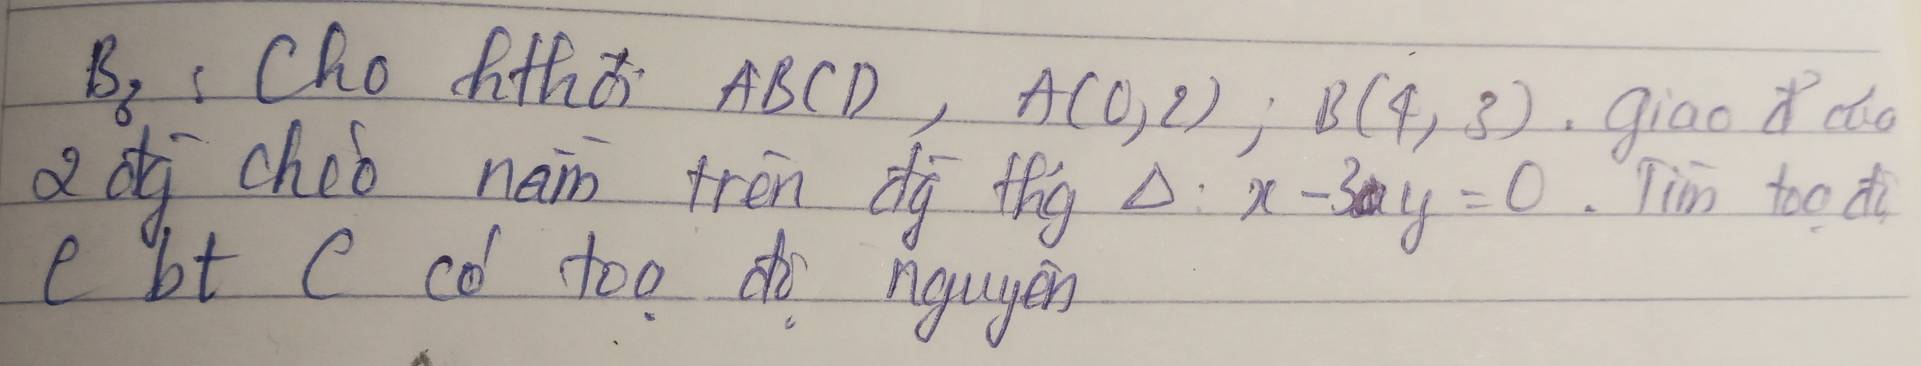 B3 : Cho hthoi ABCD, A(0,2) ; B(4, 3). giao đ' của
2 đg chéo nằm trên đg thg Δ: x - 3y = 0. Tìm toạ độ
C bt C có toạ độ nguyên